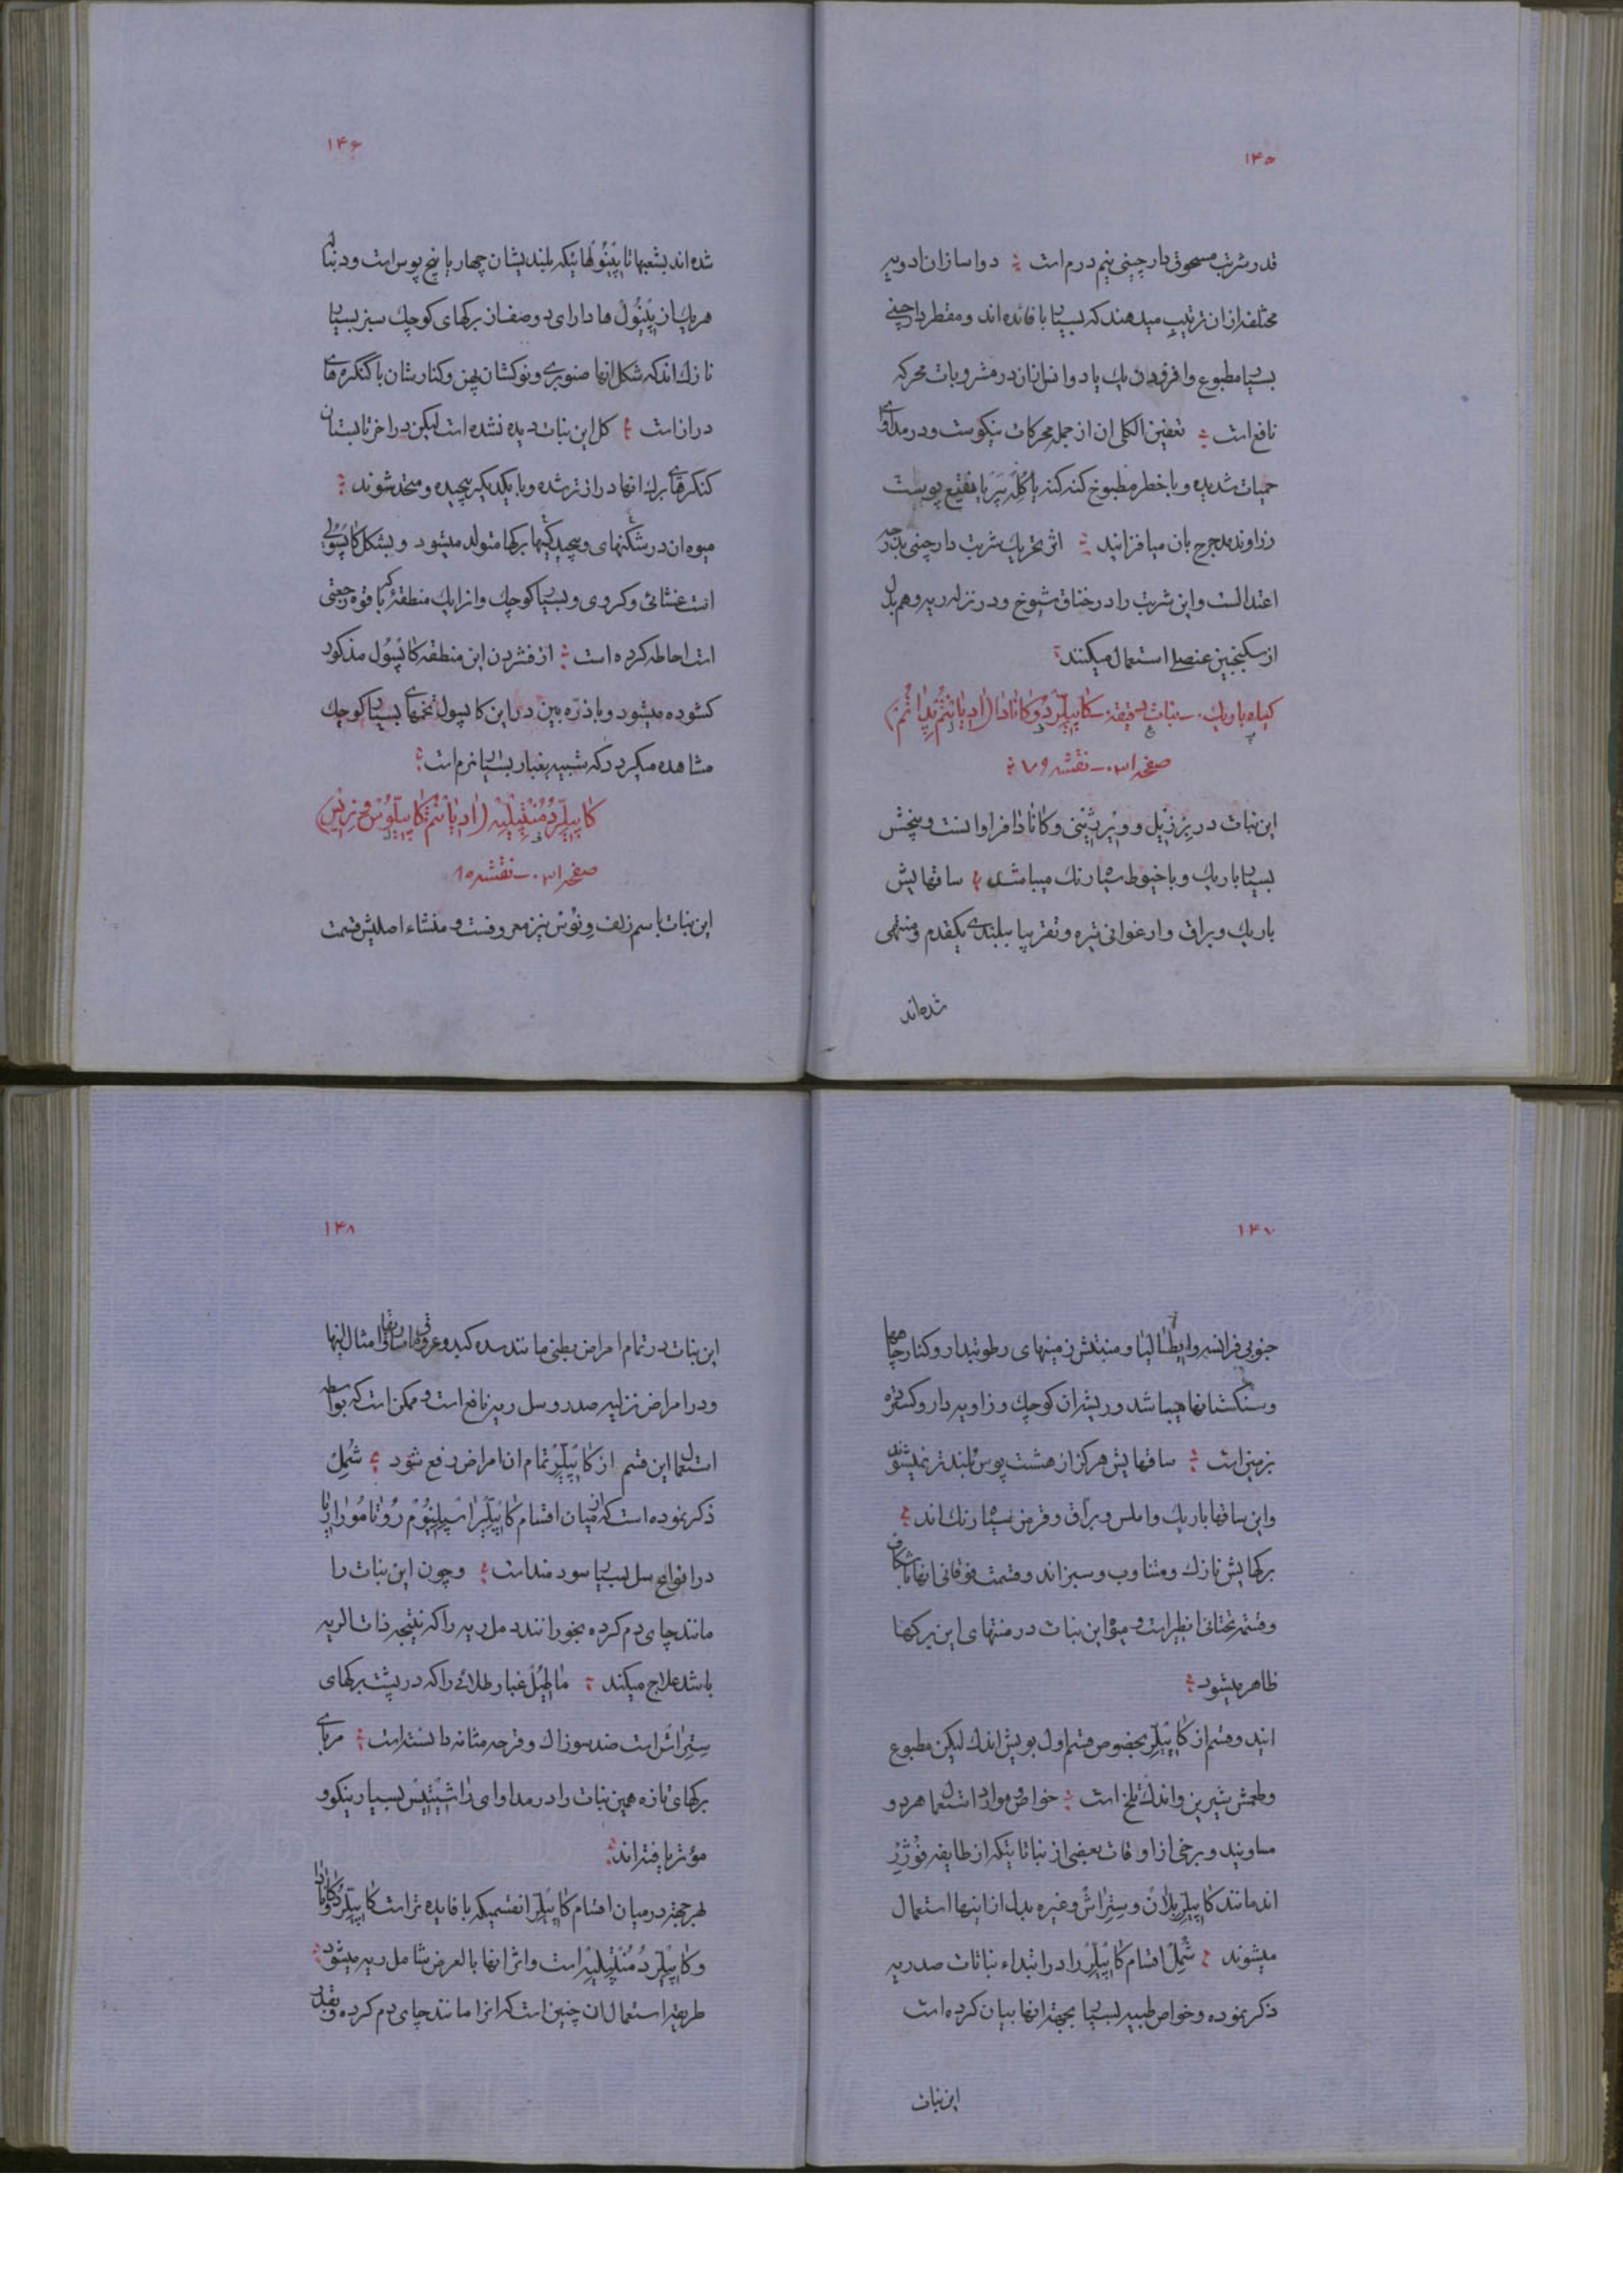 ۱۴۵
قدر شربت مسحوق دارچینی نیم درم است ؞ دواسازان ادویه
مختلفه از ان ترتیب میدهند که بسیار با فائده اند و مقطر دارچینی
بسیار مطبوع و افزودن یک یا دو انس از ان در مشروبات محرکه
نافع است ؞ تعفین الکلی ان از جمله محرکات نیکوست و در مداوای
حمیات شدیده و با خطر مطبوخ کنه کنه یا کلمبر یا نقیع پوست
زراوند مدحرج بان میافزایند ؞ اثر تحریک شربت دارچینی بدرجه
اعتدالست و این شربت را در خناق شیوخ و در نزله ریه و هم بدل
از سکنجبین عنصلی استعمال میکنند ؞
گیاه باریک ـ نبات سی و نه کاپیلّر دو کانادا (ادیانتم پداتم)
صفحه ۳۱ ـ نقشه ۷۹ ؞
این نبات در برزیل و ویرژینی و کانادا فراوانست و بیخش
بسیار باریک و با خیوط سیاه رنک میباشد ؞ ساقهایش
باریک و براق و ارغوانی تیره و تقریبا ببلندی یکقدم و منتهی
شده اند
۱۴۶
شده اند بشعبها تا پینولهائیکه بلندیشان چهار یا پنج پوس است و دنباله
هریک از پینول ها دارای دو صف از برکهای کوچک سبز بسیار
نازک اند که شکل انها صنوبری و نوکشان پهن و کنارشان با کنگره های
دراز است ؞ کل این نبات دیده نشده است لیکن در اخر تابستان
کنکرهای برک انها درازتر شده و با یکدیکر پیچیده و متحد شوند ؞
میوه ان در شکنهای و پیچیدکیها برکها متولد میشود و بشکل کاپسولی
است غشائی و کروی و بسیار کوچک و انرا یک منطقه که با قوه رجعتی
است احاطه کرده است ؞ از فشردن این منطقه کاپسول مذکور
کشوده میشود و با ذره بین در این کاپسول تخمهای بسیار کوچک
مشاهده میکردد که شبیه بغبار بسیار نرم است ؞
کاپیلّر دُ مُنتپلیه (ادیانتم کاپیلّوس و نریس)
صفحه ۳۱ ـ نقشه ۸۰
این نبات باسم زلف ونوس نیز معروفست و منشاء اصلیش قسمت
۱۴۷
جنوبی فرانسه و ایطالیا و منبتش زمینهای رطوبتدار و کنار چاهها
و سنکستانها میباشد و ریشه ان کوچک و زاویه دار و کسترده
بزمین است ؞ ساقهایش هرکز از هشت پوس بلندتر نمیشوند
و این ساقها باریک و املس و براق و قرمز سیاه رنک اند ؞
برکهایش نازک و متناوب و سبز اند و قسمت فوقانی انها با شکاف
و قسمت تحتانی انظیر است و میوه این نبات در منتهای این برکها
ظاهر میشود ؞
ایند و قسم از کاپیلّر بخصوص قسم اول بویش اندک لیکن مطبوع
و طعمش شیرین و اندک تلخ است ؞ خواص و موارد استعمال هر دو
مساویند و برخی از اوقات بعضی از نباتاتیکه از طایفه فوژر
اند مانند کاپیلّر بلان و ستراش و غیره بدل از اینها استعمال
میشوند ؞ شمل اقسام کاپیلّر را در ابتداء نباتات صدریه
ذکر نموده و خواص طبیه بسیار بجهة انها بیان کرده است
این نبات
۱۴۸
این نبات در تمام امراض بطنی مانند سده کبد و عروق ماساریقا و امثال اینها
و در امراض نزلیه صدر و سل ریه نافع است و ممکن است که بواسطه
استعمال این قسم از کاپیلّر تمام ان امراض دفع شود ؞ شمل
ذکر نموده است که از میان اقسام کاپیلّر اسپلنیوم روتا موراریا
در انواع سل بسیار سودمند است ؞ و چون این نبات را
مانند چای دم کرده بخورانند دمل ریه را که نتیجه ذات الریه
باشد علاج میکند ؞ ماطیُل غبار طلائی را که در پشت برکهای
ستراش است ضد سوزاک و قرحه مثانه دانسته است ؞ مربای
برکهای تازه همین نبات را در مداوای راشیتیس بسیار نیکو و
مؤثر یافته اند ؞
بهر جهة در میان اقسام کاپیلّر انقسمیکه با فایده تر است کاپیلّر دو کانادا
و کاپیلّر دُ مُنتپلیه است و اثر انها بالعرض شامل ریه میشود ؞
طریقه استعمال ان چنین است که انرا مانند چای دم کرده و بقدر